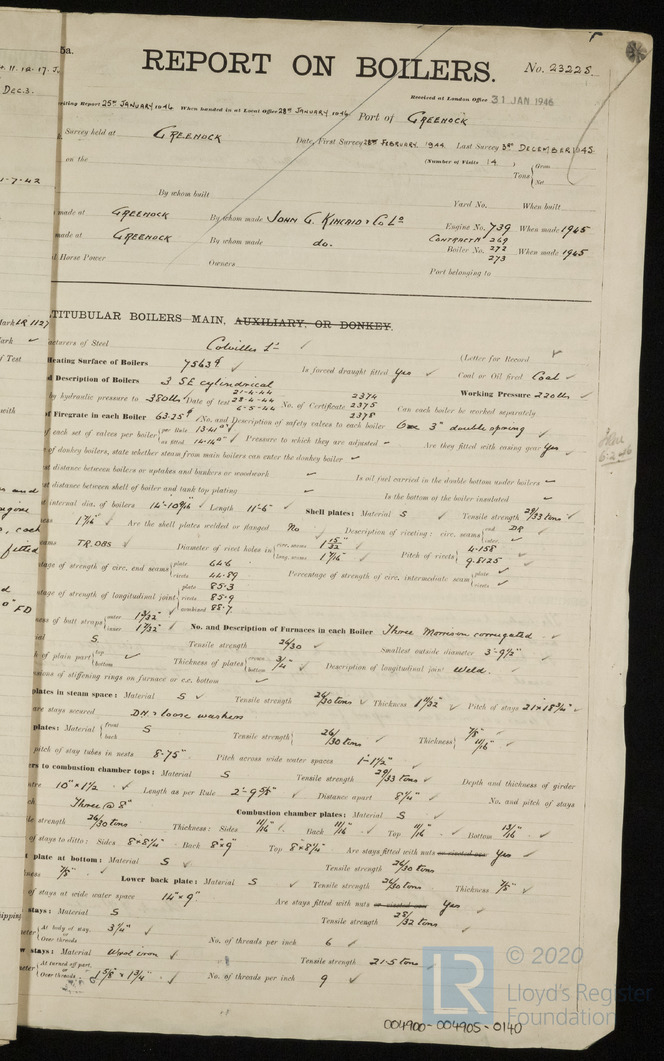 5a.
REPORT ON BOILERS. No. 23225
Received at London Office 31 JAN 1946
writing Report 25TH JANUARY 1946 When handed in at Local Office 28TH JANUARY 1946 Port of GREENOCK
Survey held at GREENOCK Date, First Survey 28TH FEBRUARY 1944 Last Survey 3RD DECEMBER 1945
(Number of Visits 14 )
on the Tons Gross Net
By whom built Yard No. When built
made at GREENOCK By whom made JOHN G. KINCAID & Co Ld Engine No. 739 When made 1945
made at GREENOCK By whom made do. CONTRACT No 269 Boiler No. 272 273 When made 1945
Horse Power Owners Port belonging to
TITUBULAR BOILERS MAIN, AUXILIARY, OR DONKEY.
acturers of Steel Colvilles Ld
Heating Surface of Boilers 7563 Is forced draught fitted Yes (Letter for Record
d Description of Boilers 3 SE cylindrical Coal or Oil fired Coal
by hydraulic pressure to 380 lbs Date of test 21-4-44 28-4-44 5-5-44 No. of Certificate 2374 2375 2378 Working Pressure 220 lbs
of Firegrate in each Boiler 63.25 No. and Description of safety valves to each boiler One 3" double spring Can each boiler be worked separately
of each set of valves per boiler per Rule 13.41 as fitted 14.14 Pressure to which they are adjusted Are they fitted with easing gear Yes
of donkey boilers, state whether steam from main boilers can enter the donkey boiler
st distance between boilers or uptakes and bunkers or woodwork Is oil fuel carried in the double bottom under boilers
st distance between shell of boiler and tank top plating Is the bottom of the boiler insulated
t internal dia. of boilers 14'-10 9/16" Length 11'-6" Shell plates: Material S Tensile strength 29/33 tons
ess 1 7/16" Are the shell plates welded or flanged No Description of riveting: circ. seams end DR inter.
eams TR.DBS Diameter of rivet holes in circ. seams 1 15/32 long. seams 1 7/16" Pitch of rivets 4.158 9.8125
tage of strength of circ. end seams plate 64.6 rivets 44.89 Percentage of strength of circ. intermediate seam plate rivets
tage of strength of longitudinal joint plate 85.3 rivets 85.9 combined 88.7
ess of butt straps outer 1 3/32" inner 1 7/32" No. and Description of Furnaces in each Boiler Three Morrison corrugated
ial S Tensile strength 26/30 Smallest outside diameter 3'-9 1/2"
h of plain part top bottom Thickness of plates crown bottom 3/4" Description of longitudinal joint Weld.
nsions of stiffening rings on furnace or c.c. bottom
plates in steam space: Material S Tensile strength 26/30 tons Thickness 1 10/32" Pitch of stays 21" x 18 3/4"
are stays secured DN & loose washers
plates: Material front back S Tensile strength 26/30 tons Thickness 7/8" 11/16"
pitch of stay tubes in nests 8.75" Pitch across wide water spaces 1'-1 1/2"
ers to combustion chamber tops: Material S Tensile strength 29/33 tons Depth and thickness of girder
ntre 10" x 1 1/2 Length as per Rule 2'-9 5/8" Distance apart 8 1/4" No. and pitch of stays
ch Three @ 8" Combustion chamber plates: Material S
le strength 26/30 tons Thickness: Sides 11/16" Back 11/16" Top 11/16" Bottom 13/16"
of stays to ditto: Sides 8" x 8 1/4" Back 8" x 9" Top 8" x 8 1/4" Are stays fitted with nuts or riveted over Yes
t plate at bottom: Material S Tensile strength 26/30 tons
ness 7/8" Lower back plate: Material S Tensile strength 26/30 tons Thickness 7/8"
of stays at wide water space 14" x 9" Are stays fitted with nuts or riveted over Yes
stays: Material S Tensile strength 28/32 tons
eter At body of stay, or Over threads 3 1/4" No. of threads per inch 6
w stays: Material Wrot iron Tensile strength 21.5 tons
eter At turned off part, or Over threads 1 5/8" x 1 3/4" No. of threads per inch 9
004900-004905-0140
© 2020
LR
Lloyd's Register
Foundation